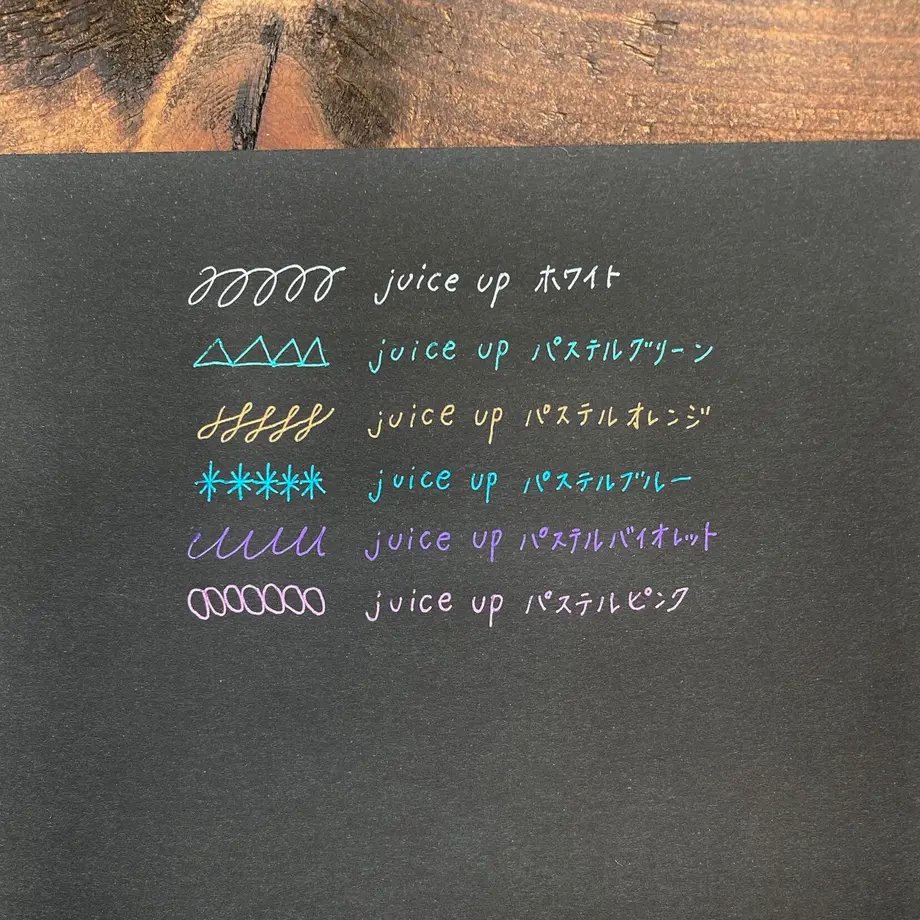 juice up ホワイト
juice up パステルグリーン
juice up パステルオレンジ
juice up パステルブルー
juice up パステルバイオレット
juice up パステルピンク